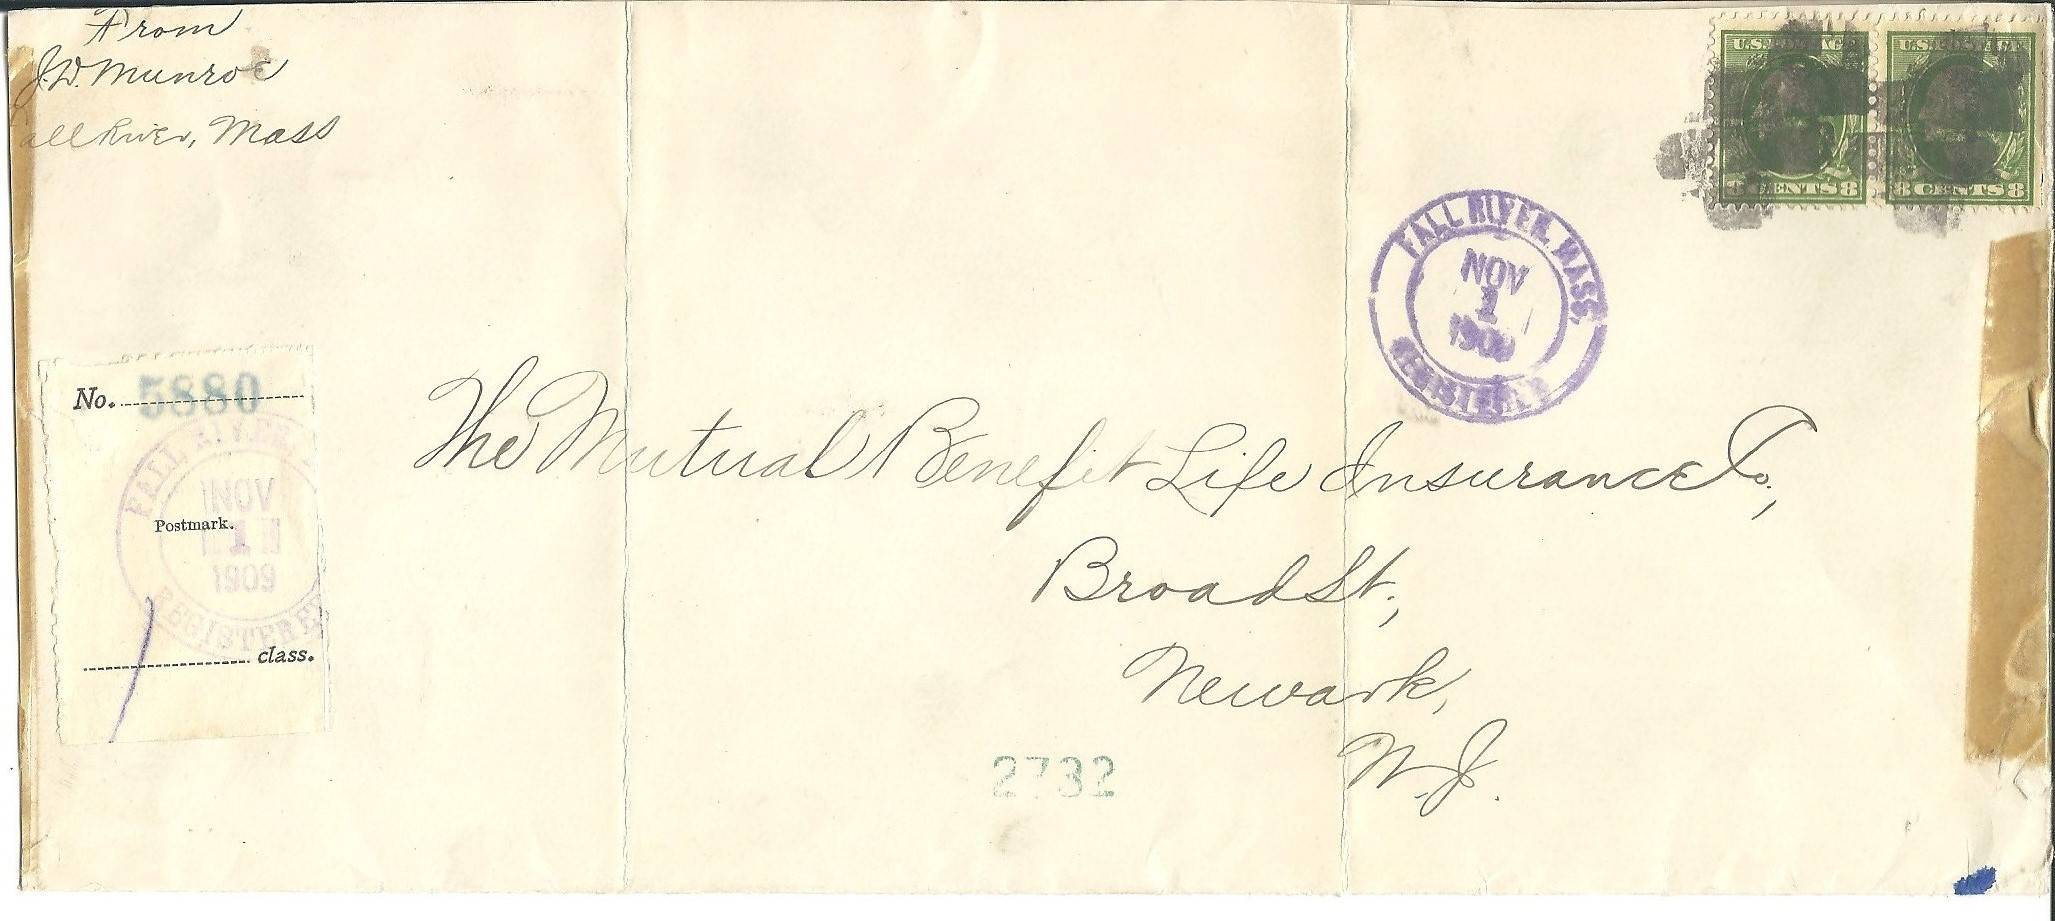 From
J.D. Munroe
Fall River, Mass
U.S. POSTAGE
8 CENTS 8
U.S. POSTAGE
8 CENTS 8
FALL RIVER, MASS.
NOV
1
1909
REGISTERED
No. 5880
FALL RIVER,
NOV
Postmark.
1
1909
REGISTERED
class.
The Mutual Benefit Life Insurance Co.,
Broad St.,
Newark,
N.J.
2732